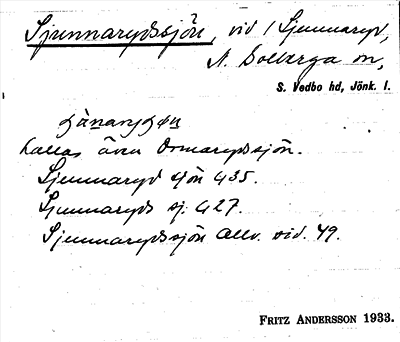 Sjunnarydssjön, vid 1 Sjunnaryd,
N. Solberga sn,
S. Vedbo hd, Jönk. l.
kallas även Ormarydssjön.
Sjunnaryd sjön 435.
Sjunnaryds sj. 427.
Sjunnarydssjön Allv. sid. 49.
FRITZ ANDERSSON 1933.